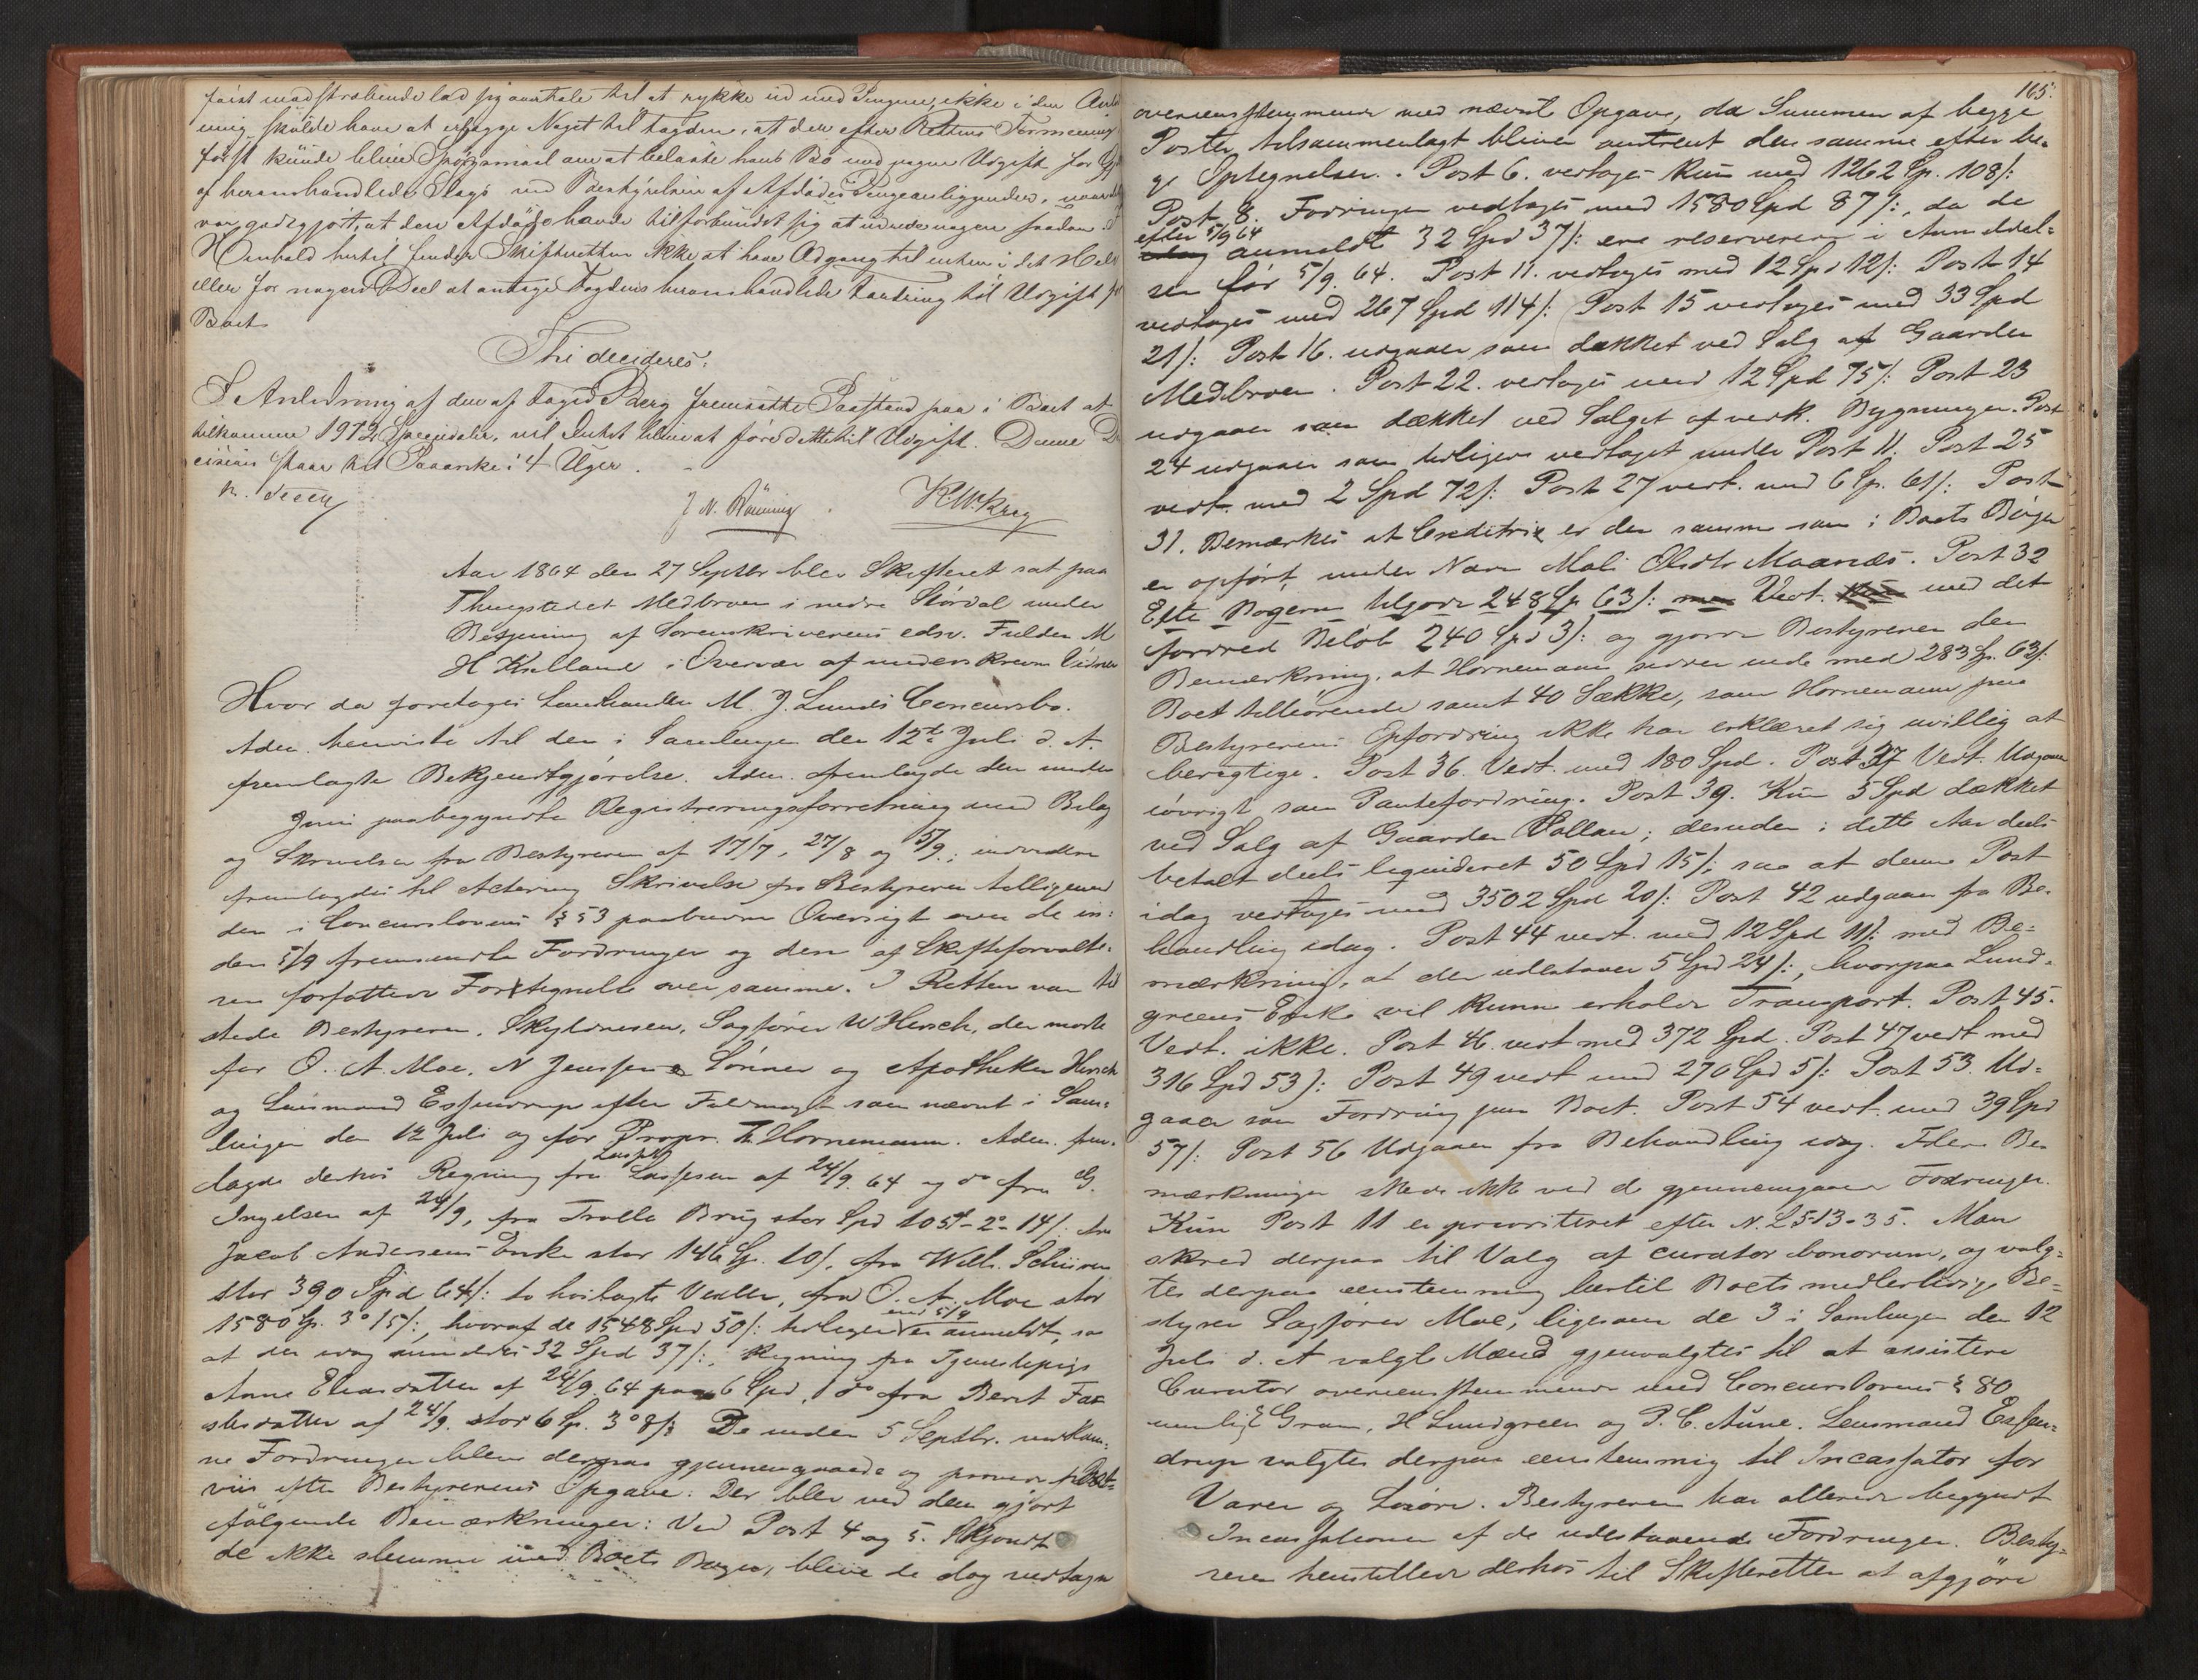 faist modstræbende lod sig overtale til at rykke ud med Pengene, ikke i den Anled
ning skulde have at erlægge Noget til Fogden, at der efter Rettens Formening
først kunde blive Spørgsmaal om at belaste hans Bo med nogen Udgift for
af heromhandlede Slags ved Bestyrelsen af Afdødes Pengeanliggender, naar det
var godtgjort, at den Afdøde havde tilforbundet sig at udrede nogen saadan.
I Henhold hertil finder Skifteretten ikke at have Adgang til enten i det Hele
eller for nogen Deel at antage Fogdens heromhandlede Fordring til Udgift for
Boet
Thi decideres:
I Anledning af den af Foged Berg fremsatte Paastand paa i Boet at
tilkomme 1912 Speciedaler, vil Intet blive at føre dette til Udgift. Denne De
cision staar til Paaanke i 4 Uger.
J. N. Rönning
Aar 1864 den 27 Septbr blev Skifteret sat paa
Thingstedet Medbroen i nedre Størdal under
Betjening af Sorenskriverens edsv. Fuldm. M
H Kielland i Overvær af underskrevne Vidner
Hvor da foretoges Landhandler M. J. Lunds Concursbo.
Adm. henviste til den i Samlingen den 12te Juli d. A.
fremlagte Bekjendtgjørelse. Adm. fremlagde den under
Juni paabegyndte Registreringsforretning med Bilag
og Skrivelser fra Bestyreren af 17/7, 27/8 og 5/9.; endvidere
fremlagdes til Actering Skrivelse fra Bestyreren tilligemed
den i Concurslovens § 53 paabudne Oversigt over de in-
den 5/9 fremsendte Fordringer og den af Skifteforvalte-
ren forfattede Fortegnelse over samme. I Retten var til
stede Bestyreren, Skyldneren, Sagfører W Hirsch, der mødte
for O. A. Moe, N Jenssen & Sønner og Apotheker Hirsch
og Lensmand Essendrop efter Fuldmagt som nævnt i Sam-
lingen den 12 Juli og for Propr. Th. Hornemann. Adm. frem-
lagde derhos Regning fra Lassesen af 24/9. 64 og do fra G.
Ingelsen af 24/9, fra Trolla Brug stor Spd 105 - 2 - 14 /. fra
Jacob Andersens Enke stor 146 Sp. 10 /, fra Will. Schiiven
stor 390 Spd 64 /: to hoslagte Vexler, fra O. A. Moe stor
1580 Sp. 3 o 15 /:, hvoraf de 1548 Spd 50 /: tidligere er anmeldt, saa
at der idag anmeldes 32 Spd 37 /:, Regning fra Tjenestepige
Anne Eliasdatter af 24/9. 64 paa 6 Spd, do fra Beret
datter af 24/9. stor 6 Sp. 3 o 8 /: De inden 5 Septbr. indkom-
ne Fordringer bleve derpaa gjennemgaaede og prøvede Post-
viis efter Bestyrerens Opgave. Der blev ved dem gjort
følgende Bemærkninger: Ved Post 4 og 5. Skjøndt
de ikke stemme med Boets Bøger, bleve de dog vedtagne
165.
overensstemmende med nævnte Opgave, da Summen af begge
Poster tilsammenlagt bliver omtrent den samme efter be-
ge Optegnelser. Post 6. vedtages kun med 1262 Sp. 108 /:
Post 8. Fodringen vedtages med 1580 Spd 87 /:, da de
efter 5/9 64
anmeldte 32 Spd 37 /: ere reserverede i Anmeldel-
sen før 5/9. 64. Post 11. vedtages med 12 Spd 12 /: Post 14
vedtages med 267 Spd 114 /: Post 15 vedtages med 33 Spd
21 /: Post 16. udgaaer som dækket ved Salg af Gaarden
Medbroen. Post 22. vedtages med 12 Spd 75 /: Post 23
udgaaer som dækket ved Salget af vedk. Bygninger. Post
24 udgaaer som tidligere vedtaget under Post 11. Post 25
vedt. med 2 Spd 72 /: Post 27 vedt. med 6 Sp. 61 /: Post
31. Bemærkes at Creditrix er den samme som i Boets Bøger
er opført under Navn Mali Olsdtr Maanæs. Post 32
Efter Bøgerne tilgode 248 Sp 63 /: Vedt. med det
fordred Beløb 240 Spd 3 /: og gjorde Bestyreren den
Bemærkning, at Hornemann sidder inde med 283 Sp. 63 /:
Boet tilhørende samt 40 Sække, som Hornemann paa
Bestyrerens Opfordring ikke har erklæret sig uvillig at
berigtige. Post 36. Vedt. med 180 Spd. Post 37 Vedt. Udgaaer
iøvrigt som Pantefordring. Post 39. Kun 5 Spd dækket
ved Salg af Gaarden Vollan; desuden i dette Aar deels
betalt deels liquideret 50 Spd 15 /:, saa at denne Post
idag vedtages med 3502 Spd 20 /: Post 42 udgaaer fra Be-
handling idag. Post 44 vedt. med 12 Spd 11 /: med Be-
mærkning, at der udestaaer 5 Spd 24 /:, hvorpaa Lund-
greens Enke vil kunne erholde Transport. Post 45.
Vedt. ikke. Post 46. vedt med 372 Spd. Post 47 vedt med
316 Spd 53 /: Post 49 vedt med 270 Spd 5 /: Post 53. Ud-
gaaer som Fordring paa Boet. Post 54 vedt. med 39 Spd
57 /: Post 56 Udgaaer fra Behandling idag. Flere Be-
mærkninger skede ikke ved de gjennemgaaede Fodringer.
Kun Post 11 er prioriteret efter N. L 5-13-35. Man
skred derpaa til Valg af curator bonorum, og valg-
tes derpaa eenstemmig hertil Boets midlertidige Be-
styrer Sagfører Moe, ligesom de 3 i Samlingen den 12
Juli d. A valgte Mænd gjenvalgtes til at assistere
Curator overensstemmende med Concurslovens § 80
nemlig Gram, H Lundgreen og P. C. Aune. Lensmand Essen-
drop valgtes derpaa eenstemmig til Incassator for
Varer og Løsøre. Bestyreren har allerede begyndt
Incassationen af de udestaaende Fordringer. Besty-
reren henstillede derhos til Skifteretten at afgjøre